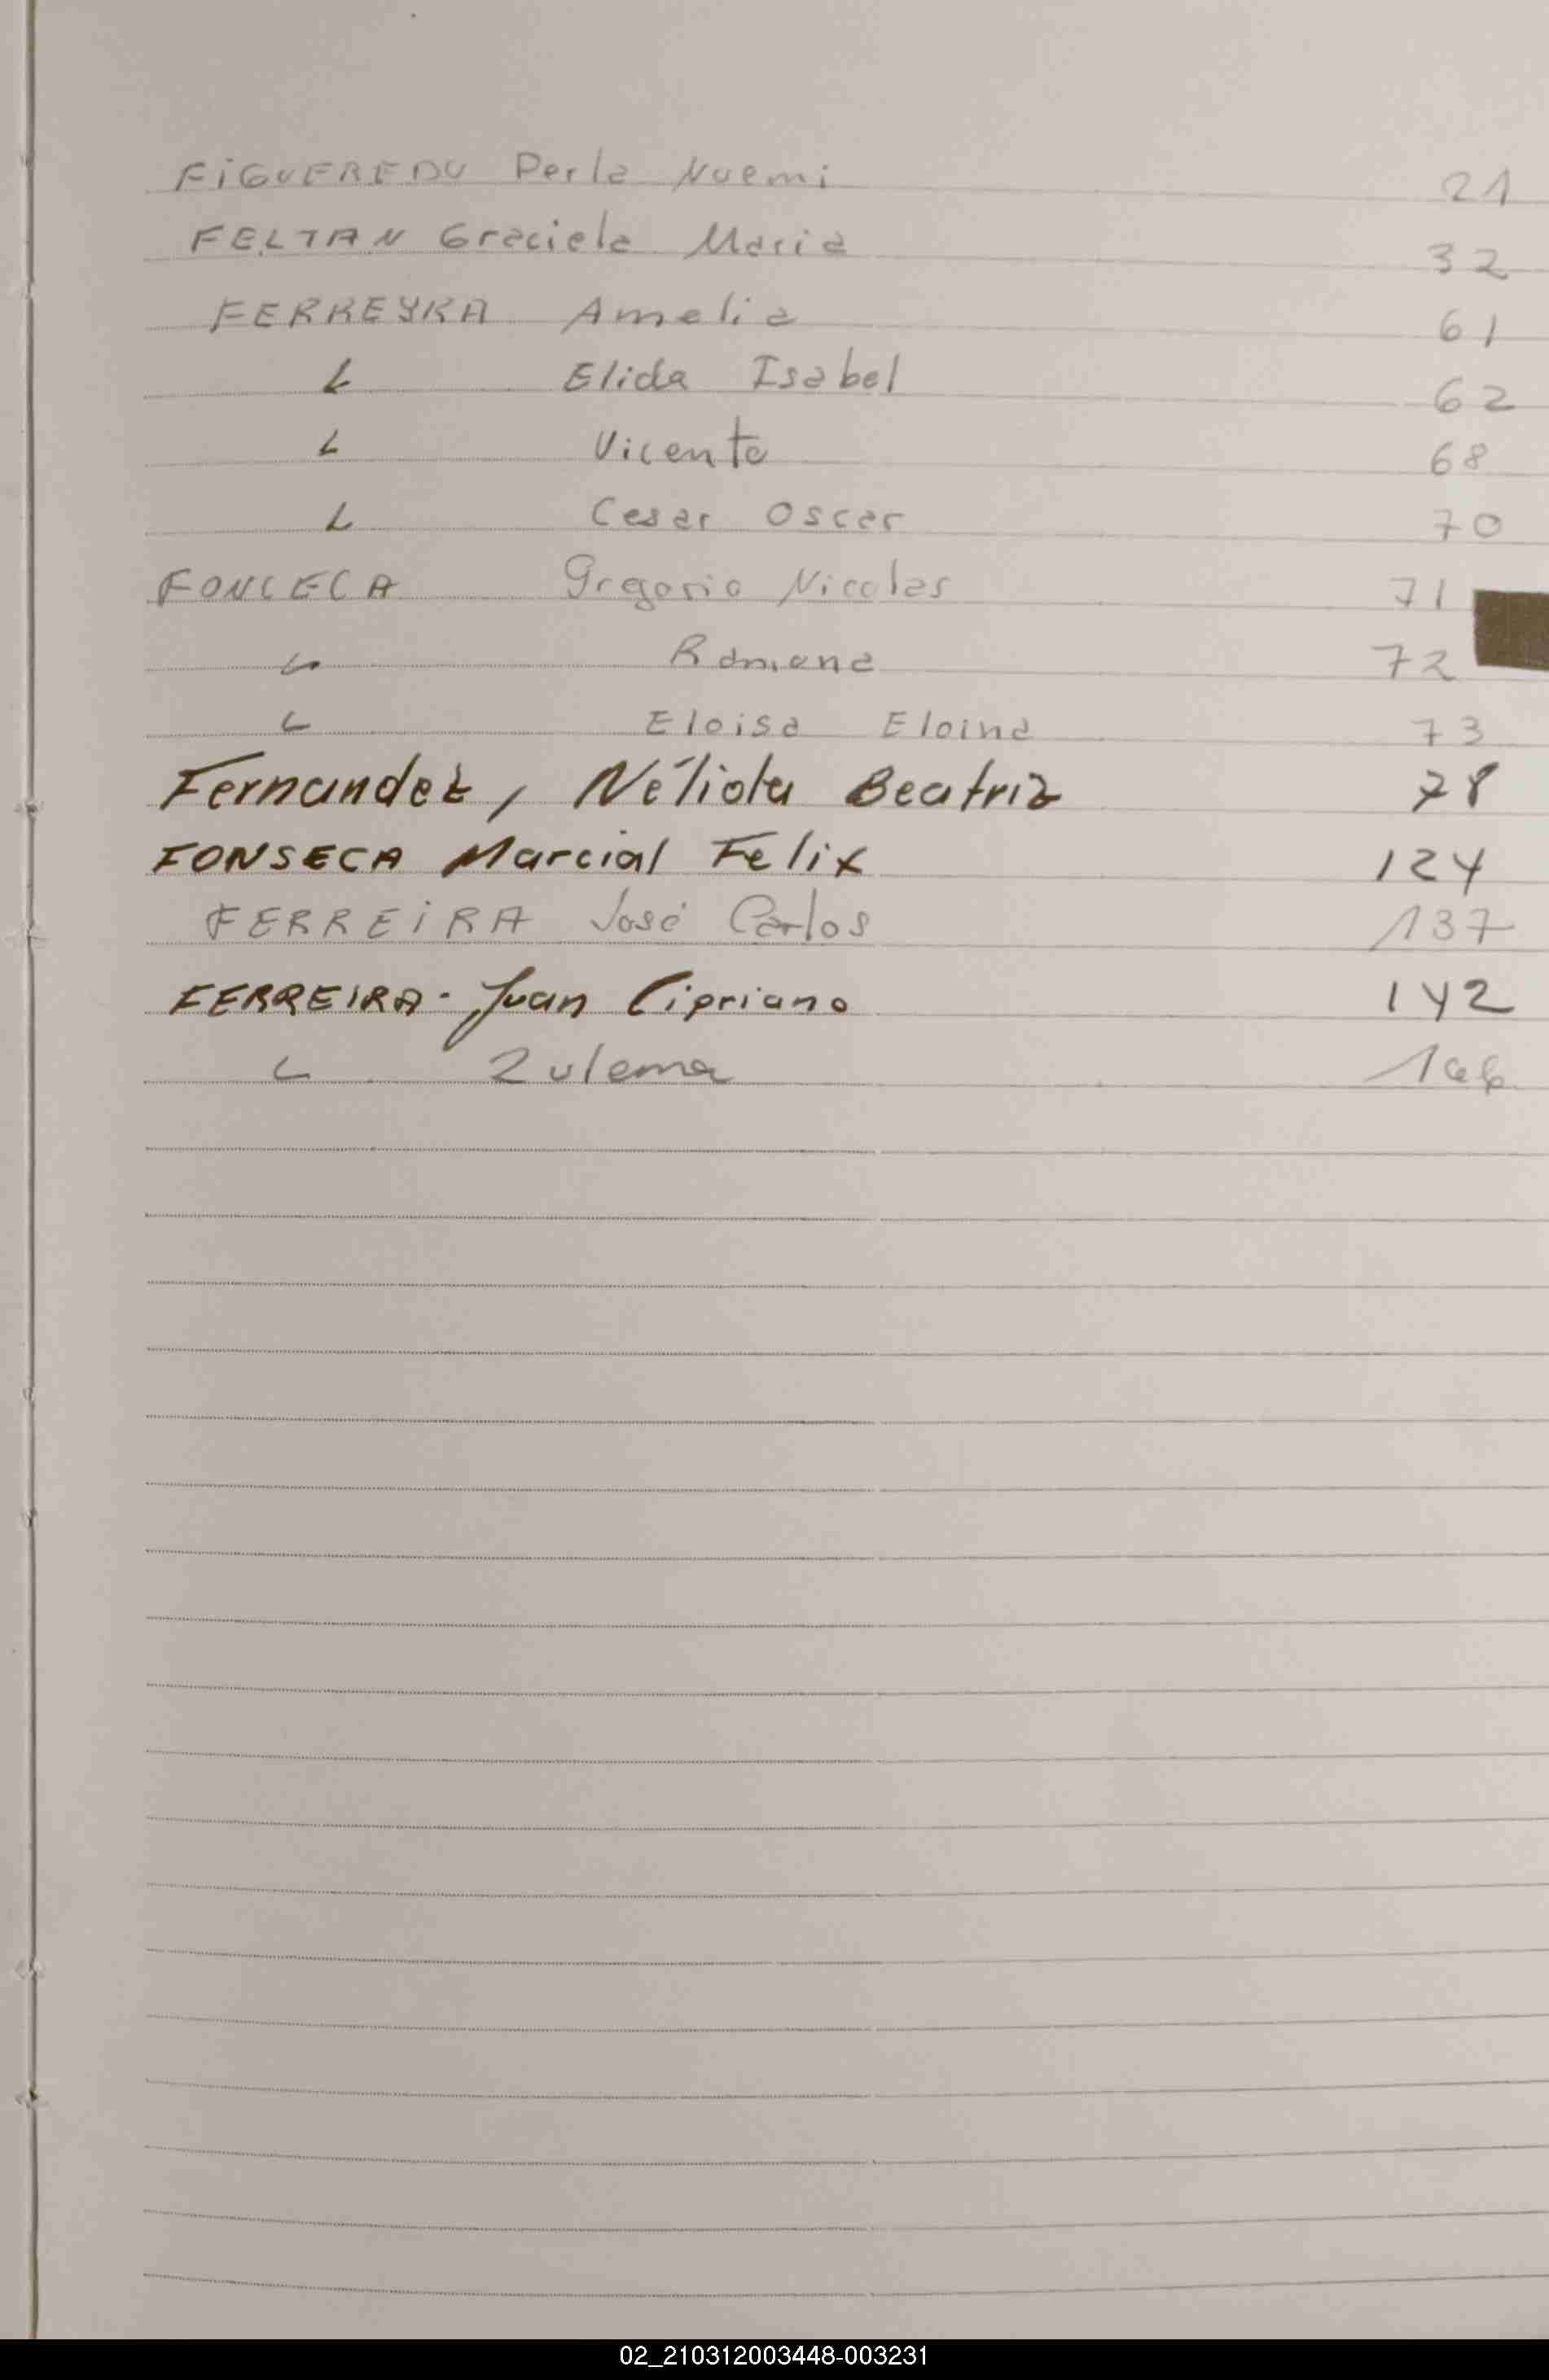 FiGUEREDO Perla Noemi 21
FELTAN Graciela Maria 32
FERREYRA Amelia 61
L Elida Isabel 62
L Vicenta 68
L Cesar Oscar 70
FONCECA Gregorio Nicolas 71
L Ramona 72
L Eloisa Eloina 73
Fernandez, Nélida Beatriz 78
FONSECA Marcial Felix 124
FERREiRA José Carlos 137
FERREIRA - Juan Cipriano 142
L Zulema
02_210312003448-003231